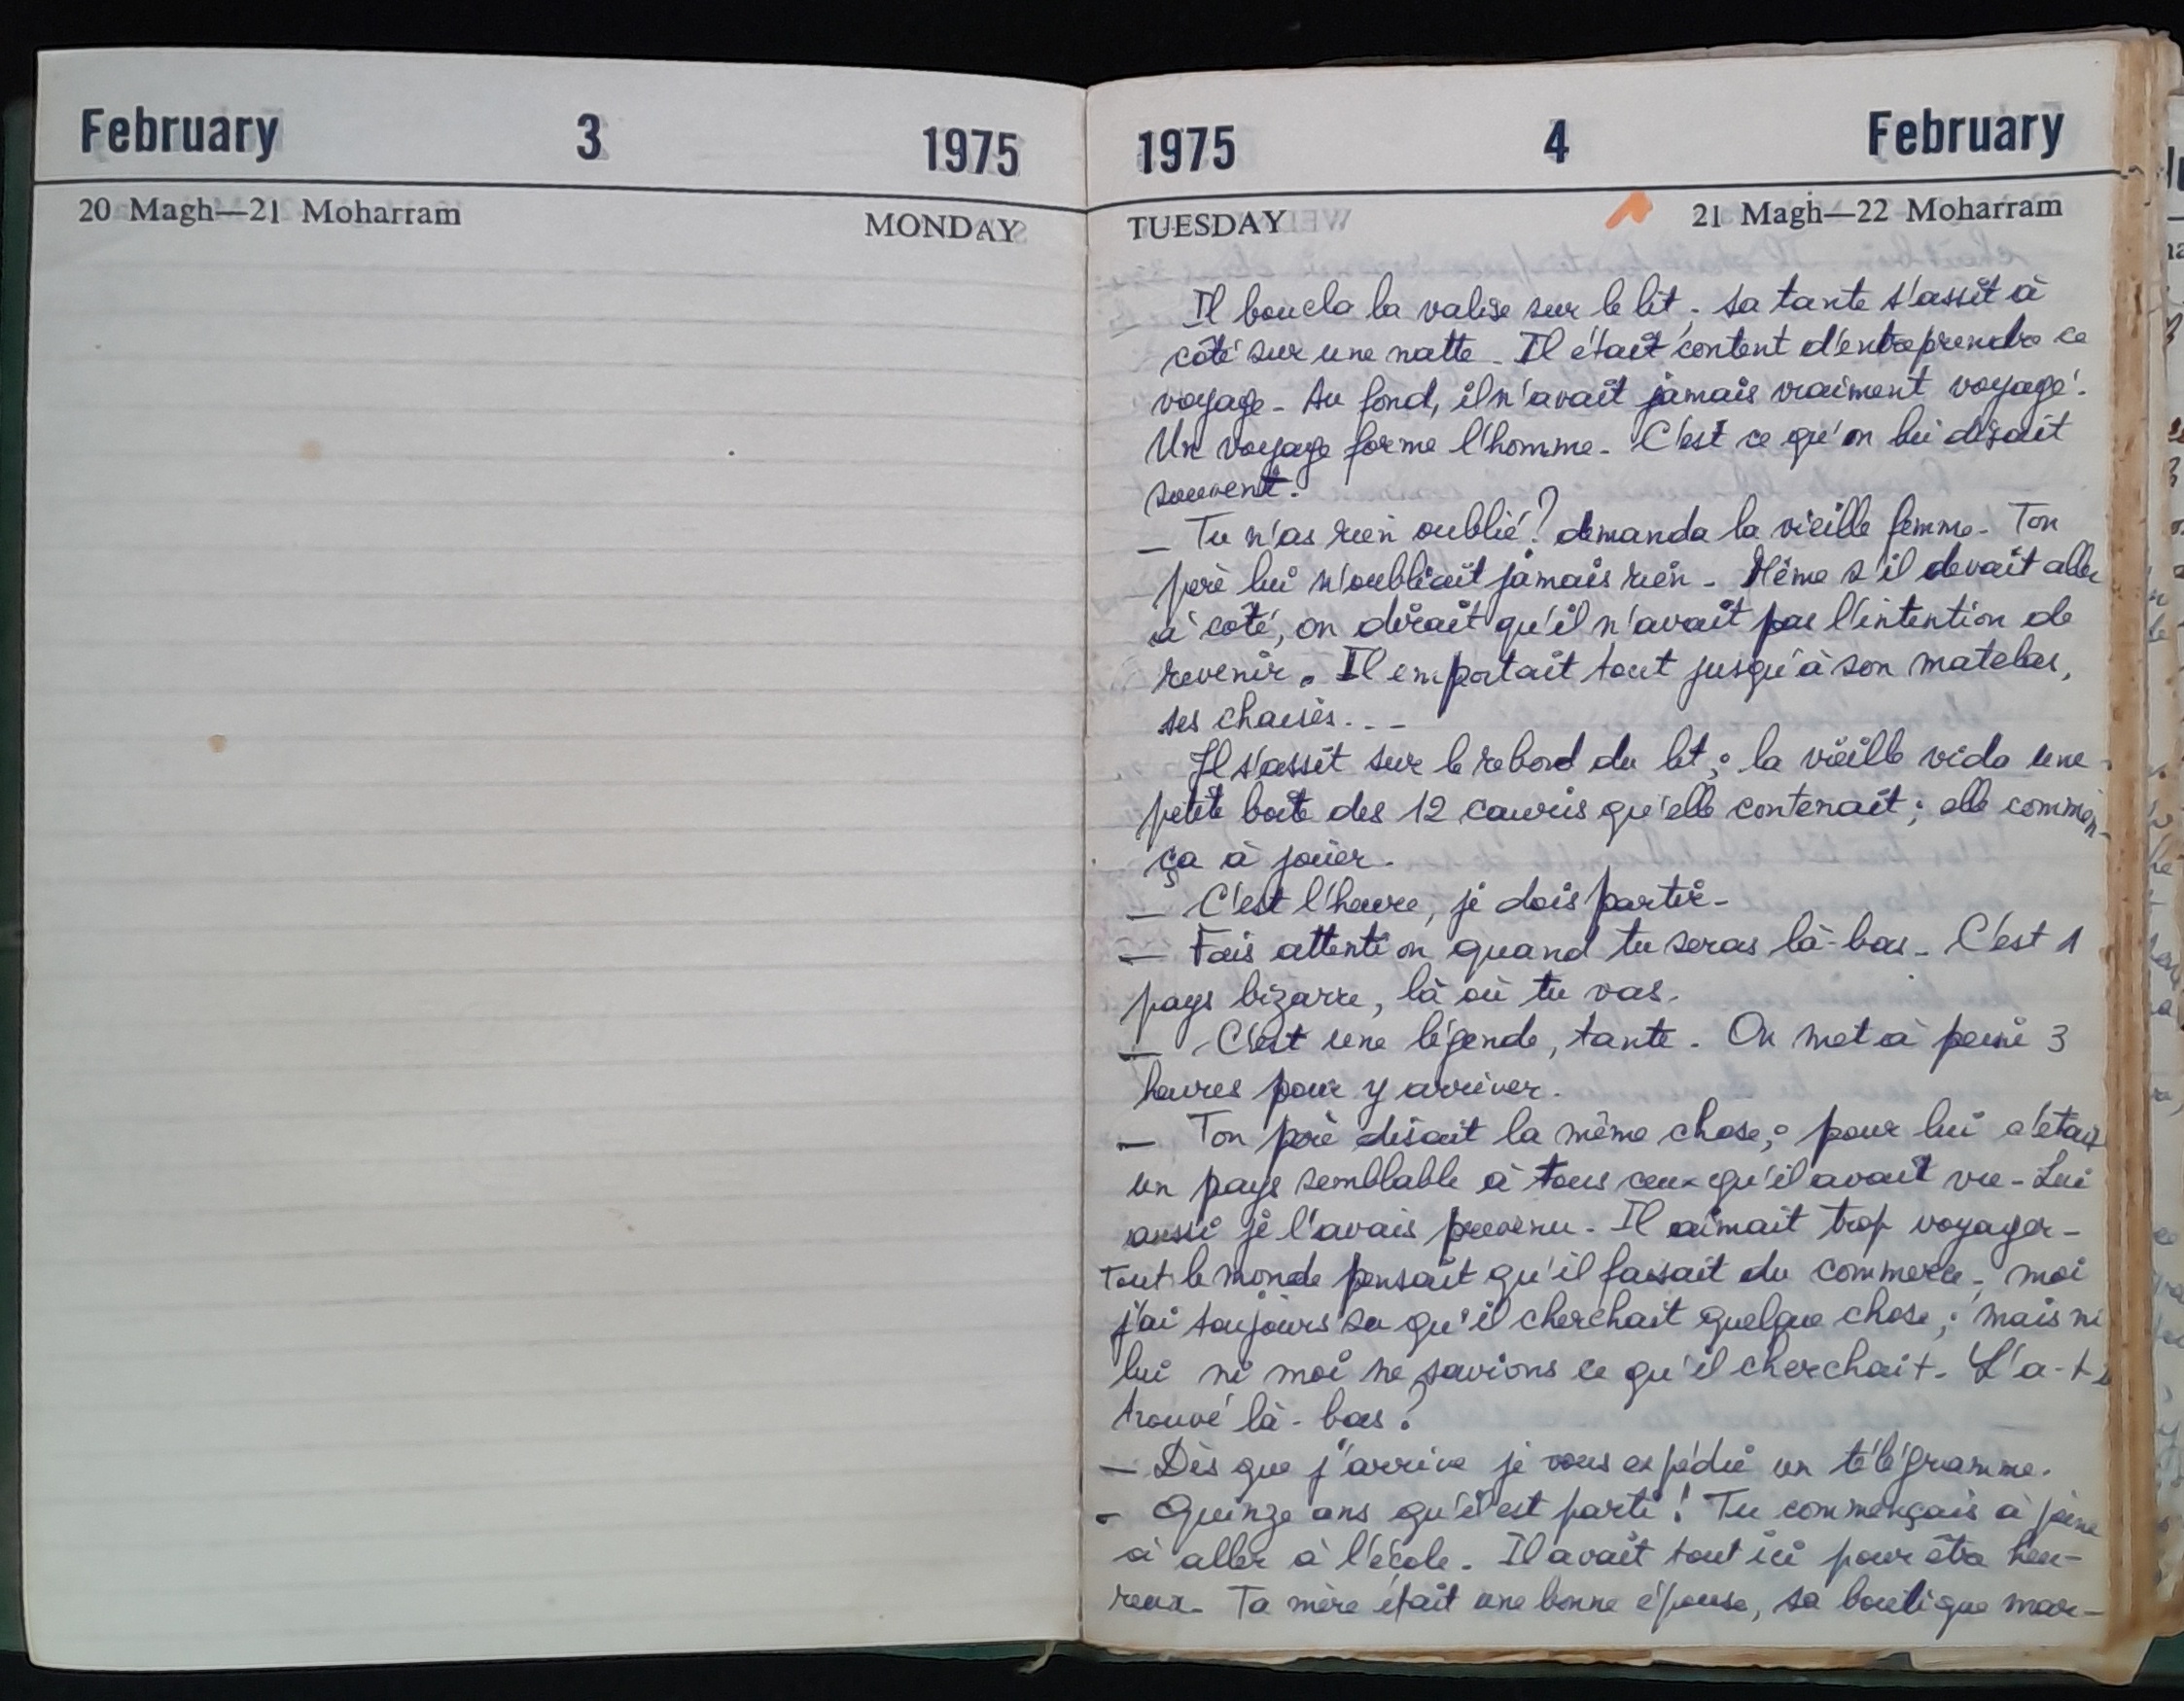 February 3 1975
20 Magh—21 Moharram MONDAY
1975 4 February
TUESDAY 21 Magh—22 Moharram
Il boucla la valise sur le lit ; sa tante s'assit à
côté sur une natte. Il était content d'entreprendre ce
voyage. Au fond, il n'avait jamais vraiment voyagé.
Un voyage forme l'homme. C'est ce qu'on lui disait
souvent.
— Tu n'as rien oublié ? demanda la vieille femme. Ton
père lui n'oubliait jamais rien. Même s'il devait aller
à côté, on dirait qu'il n'avait pas l'intention de
revenir. Il emportait tout jusqu'à son matelas,
ses chaises...
Il s'assit sur le rebord du lit ; la vieille vida une
petite boîte des 12 cauris qu'elle contenait ; elle commen-
ça à jouer.
— C'est l'heure, je dois partir.
— Fais attention quand tu seras là-bas. C'est 1
pays bizarre, là où tu vas.
— C'est une légende, tante. On met à peine 3
heures pour y arriver.
— Ton père disait la même chose ; pour lui c'était
un pays semblable à tous ceux qu'il avait vu. Lui
aussi je l'avais prévenu. Il aimait trop voyager.
Tout le monde pensait qu'il faisait du commerce ; moi
j'ai toujours su qu'il cherchait quelque chose ; mais ni
lui ni moi ne savions ce qu'il cherchait. L'a-t-il
trouvé là-bas ?
— Dès que j'arrive je vous expédie un télégramme.
- Quinze ans qu'il est parti ! Tu commençais à peine
à aller à l'école. Il avait tout ici pour être heu-
reux. Ta mère était une bonne épouse, sa boutique mar-